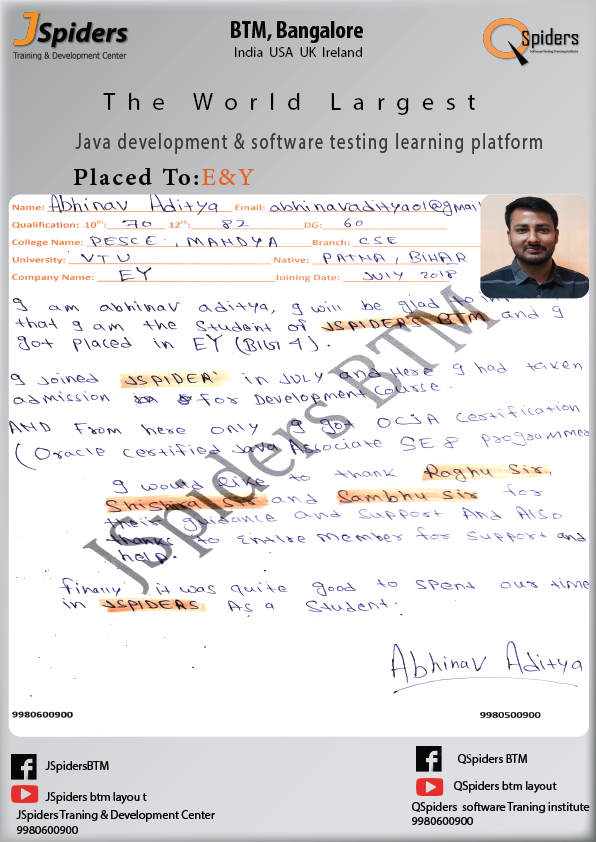 JSpiders
Training & Development Center
BTM, Bangalore
India USA UK Ireland
QSpiders
Software Testing Training Institute
The World Largest
Java development & software testing learning platform
Placed To:E&Y
Name: Abhinav Aditya Email: abhinavaditya01@gmail
Qualification: 10th: 70 12th: 82 DG: 60
College Name: PESCE, MANDYA Branch: CSE
University: VTU Native: PATNA, BIHAR
Company Name: EY Joining Date: JULY 2018
I am abhinav aditya, I will be glad to
that I am the student of JSPIDERS BTM and I
got placed in EY (BIG 4).
I joined JSPIDER in JULY and Here I had taken
admission for Development Course.
AND From here only I got OCJA Certification
(Oracle certified Java Associate SE8 programmer
I would like to thank Raghu Sir,
Shishira Sir and Sambhu Sir for
their guidance and Support And Also
thanks to Entire Member for Support and
help.
Finally it was quite good to spent our time
in JSPIDERS As a Student.
Abhinav Aditya
JSpiders BTM
9980600900 9980500900
JSpidersBTM
JSpiders btm layou t
JSpiders Traning & Development Center
9980600900
QSpiders BTM
QSpiders btm layout
QSpiders software Traning institute
9980600900